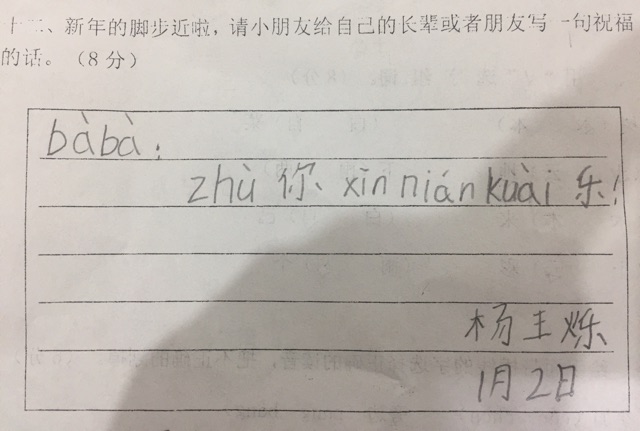 十二、新年的脚步近啦，请小朋友给自己的长辈或者朋友写一句祝福
的话。（8分）
bàbà：
zhù 你、xīn nián kuài 乐！
杨主烁
1月2日